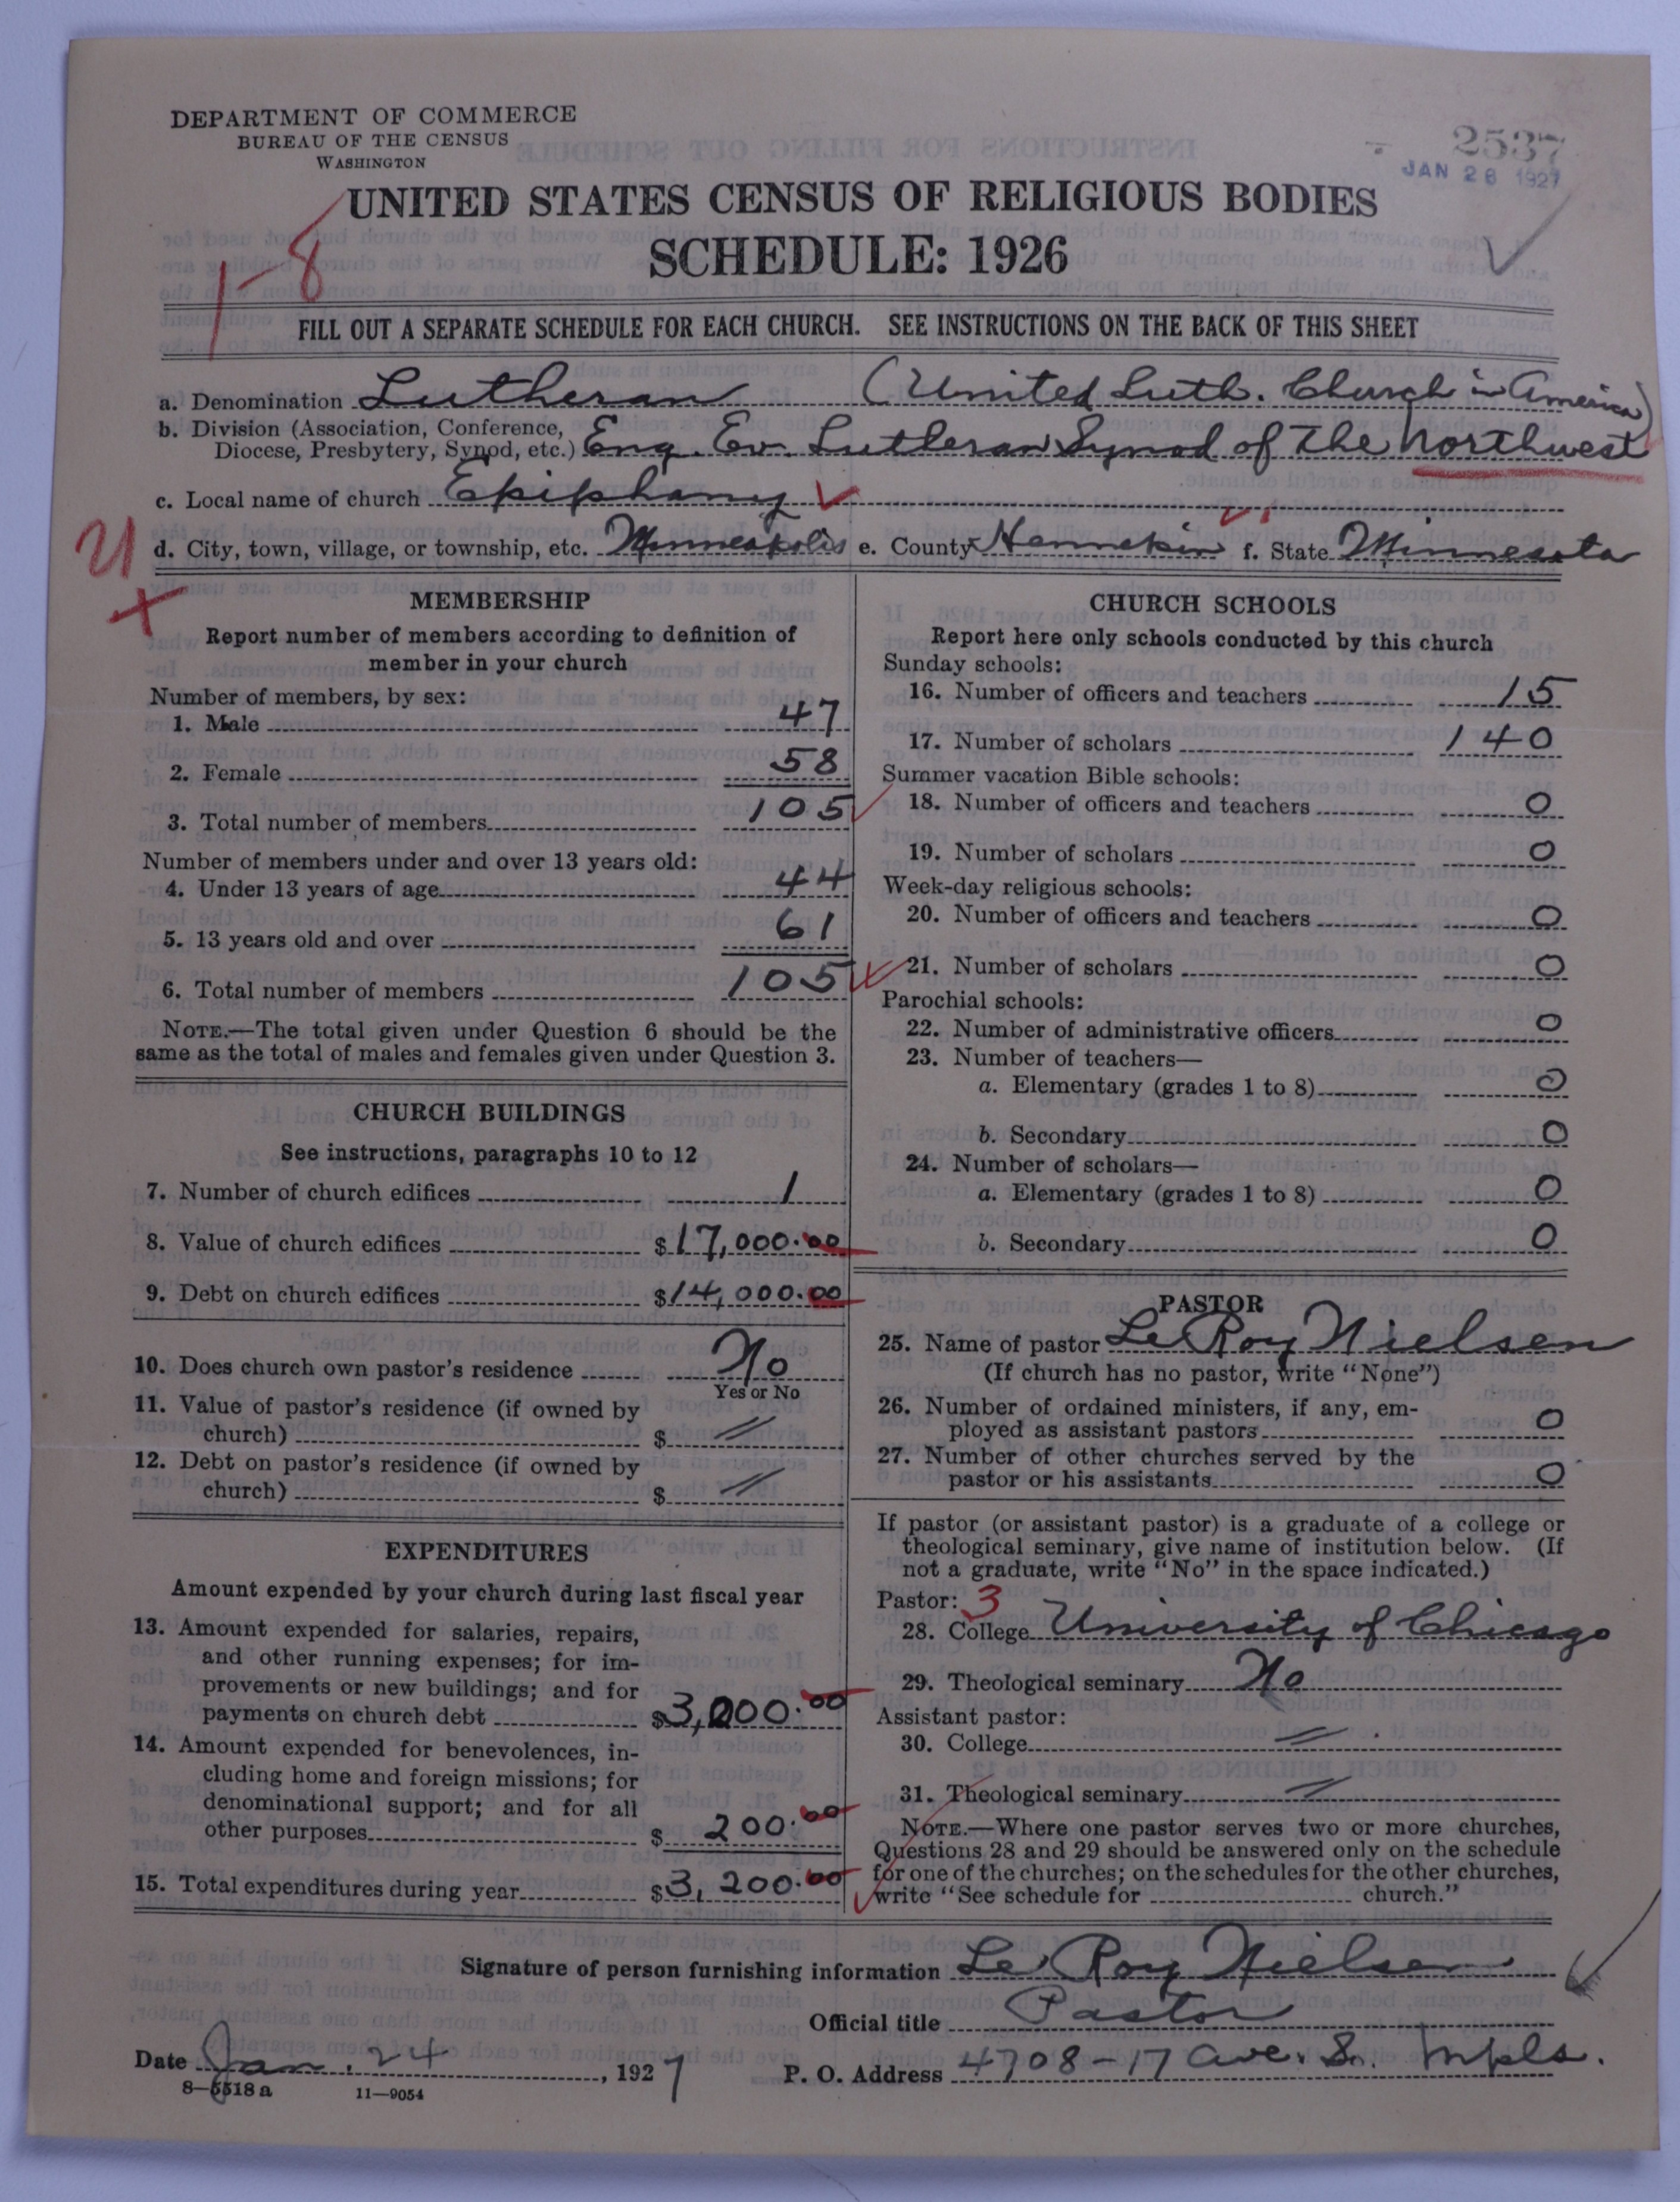 DEPARTMENT OF COMMERCE
BUREAU OF THE CENSUS
WASHINGTON
2537
JAN 26 1927
UNITED STATES CENSUS OF RELIGIOUS BODIES
SCHEDULE: 1926
1-8
FILL OUT A SEPARATE SCHEDULE FOR EACH CHURCH. SEE INSTRUCTIONS ON THE BACK OF THIS SHEET
a. Denomination Lutheran (United Luth. Church in America)
b. Division (Association, Conference,
Diocese, Presbytery, Synod, etc.) Eng. Ev. Lutheran Synod of the Northwest
c. Local name of church Epiphany
d. City, town, village, or township, etc. Minneapolis e. County Hennekin f. State Minnesota
MEMBERSHIP
Report number of members according to definition of
member in your church
Number of members, by sex:
1. Male 47
2. Female 58
3. Total number of members 105
Number of members under and over 13 years old:
4. Under 13 years of age 44
5. 13 years old and over 61
6. Total number of members 105
NOTE.—The total given under Question 6 should be the
same as the total of males and females given under Question 3.
CHURCH BUILDINGS
See instructions, paragraphs 10 to 12
7. Number of church edifices 1
8. Value of church edifices $17,000.00
9. Debt on church edifices $14,000.00
10. Does church own pastor's residence No
Yes or No
11. Value of pastor's residence (if owned by
church) $ //
12. Debt on pastor's residence (if owned by
church) $ //
EXPENDITURES
Amount expended by your church during last fiscal year
13. Amount expended for salaries, repairs,
and other running expenses; for im-
provements or new buildings; and for
payments on church debt $3,000.00
14. Amount expended for benevolences, in-
cluding home and foreign missions; for
denominational support; and for all
other purposes $ 200.00
15. Total expenditures during year $3,200.00
CHURCH SCHOOLS
Report here only schools conducted by this church
Sunday schools:
16. Number of officers and teachers 15
17. Number of scholars 140
Summer vacation Bible schools:
18. Number of officers and teachers 0
19. Number of scholars 0
Week-day religious schools:
20. Number of officers and teachers 0
21. Number of scholars 0
Parochial schools:
22. Number of administrative officers 0
23. Number of teachers—
a. Elementary (grades 1 to 8) 0
b. Secondary 0
24. Number of scholars—
a. Elementary (grades 1 to 8) 0
b. Secondary 0
PASTOR
25. Name of pastor Le Roy Nielsen
(If church has no pastor, write "None")
26. Number of ordained ministers, if any, em-
ployed as assistant pastors 0
27. Number of other churches served by the
pastor or his assistants 0
If pastor (or assistant pastor) is a graduate of a college or
theological seminary, give name of institution below. (If
not a graduate, write "No" in the space indicated.)
Pastor: 3
28. College University of Chicago
29. Theological seminary No
Assistant pastor:
30. College //
31. Theological seminary //
NOTE.—Where one pastor serves two or more churches,
Questions 28 and 29 should be answered only on the schedule
for one of the churches; on the schedules for the other churches,
write "See schedule for church."
Signature of person furnishing information Le Roy Nielsen
Official title Pastor
Date Jan. 24, 1927 P. O. Address 4708-17 Ave. S. Mpls.
8—5518 a 11—9054